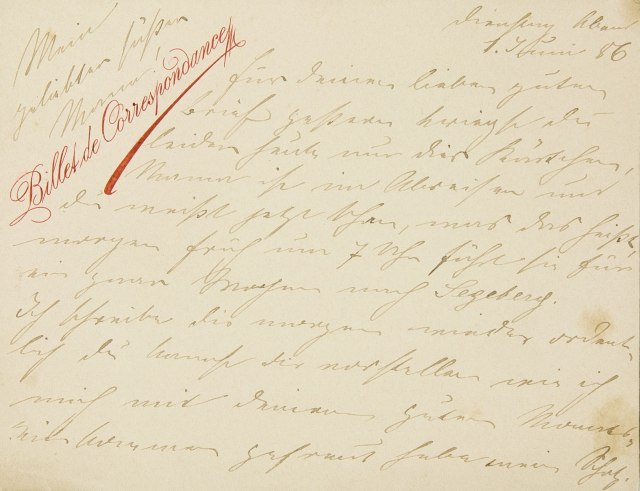 Dienstag Abend
1. Juni 86
Mein
geliebter süßer
Mann!
Billet de Correspondance
Für deinen lieben guten
Brief gestern kriegst du
leider heute nur dies Kärtchen,
Mama ist im Abreisen und
du weißt jetzt schon, was das heißt,
morgen früh um 7 Uhr fährt sie für
ein paar Wochen nach Segeberg.
Ich schreibe dir morgen wieder ordent
lich du kannst dir vorstellen wie ich
mich mit deinem guten
gefreut habe mein Schatz.